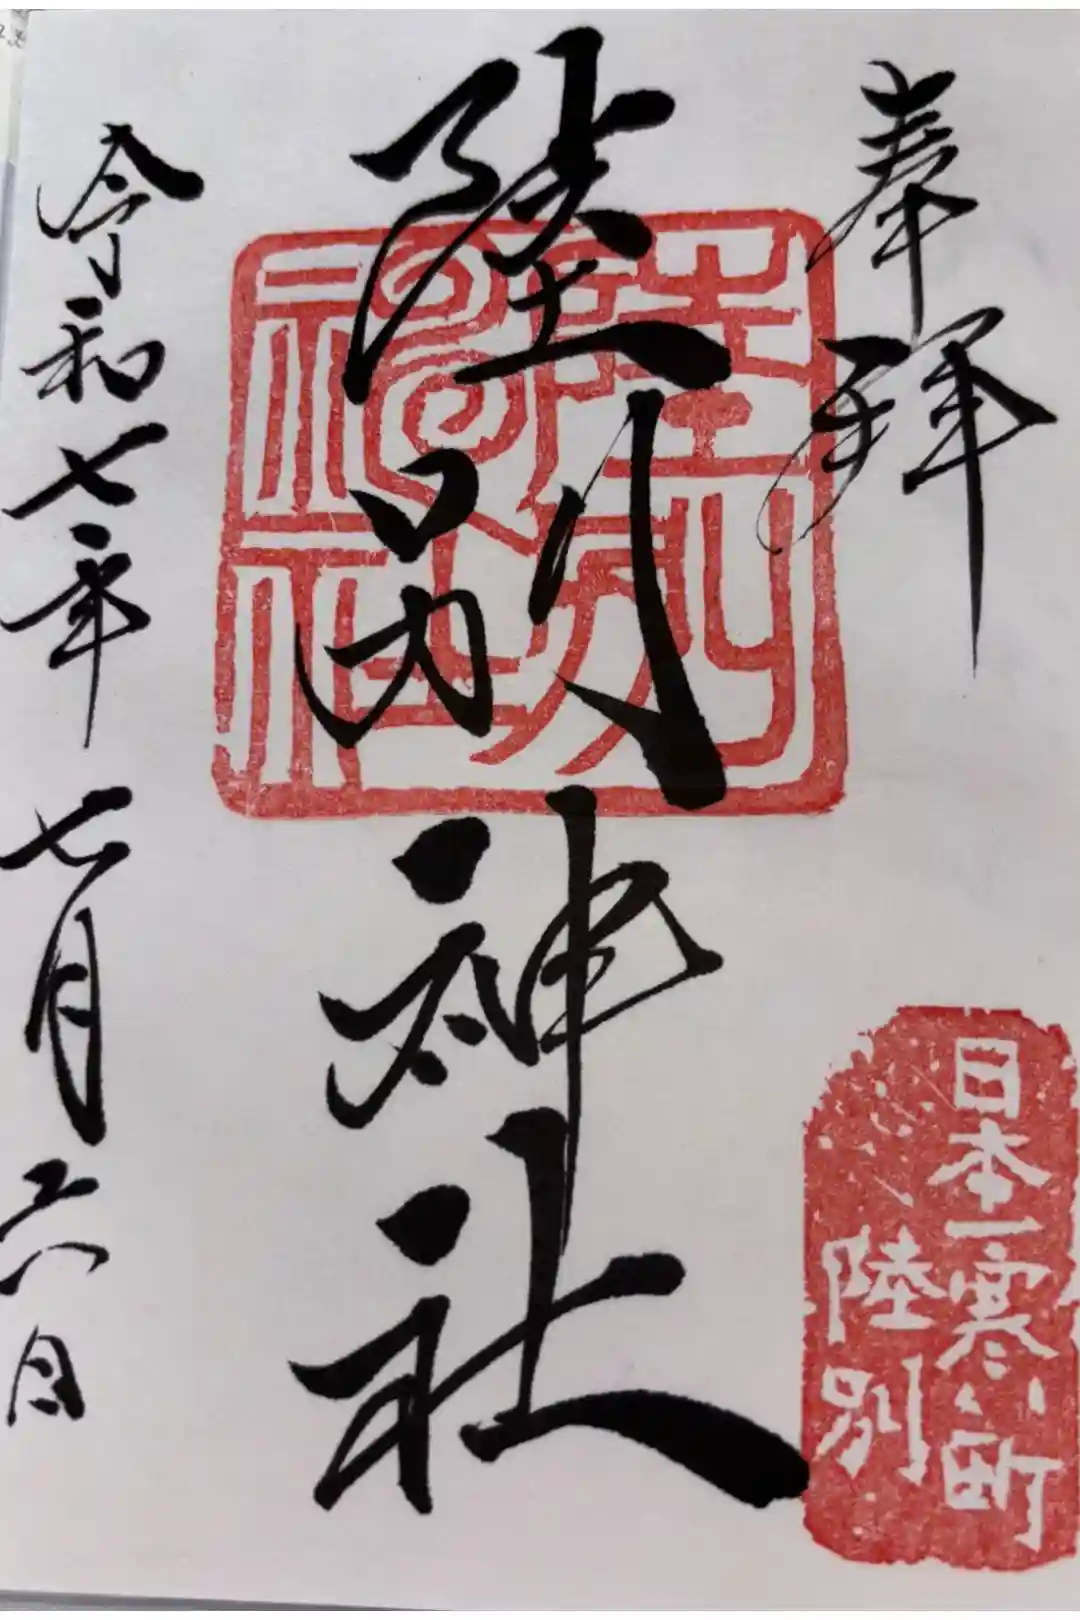 奉拝
日本一寒い町
陸別
陸別神社
陸別神社
令和七年七月六日